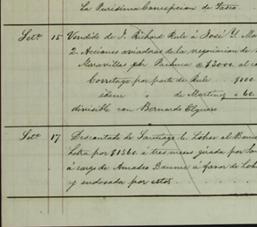 La Purísima Concepcion de
Set.e 15 Vendido de J. Richard Rule á José M.
2 Acciones aviadoras de la negociacion de
Maravillas Pachuca @ $3000. al
Corretaje por parte de Rule
idem " de Martinez " 60.
divisible con Bernardo
Set.e 17 Descontado de Santiago Lohse al
Letra por $1360. á tres meses girada por
á cargo de Amadeo á favor de Loh
y endosada por estos.